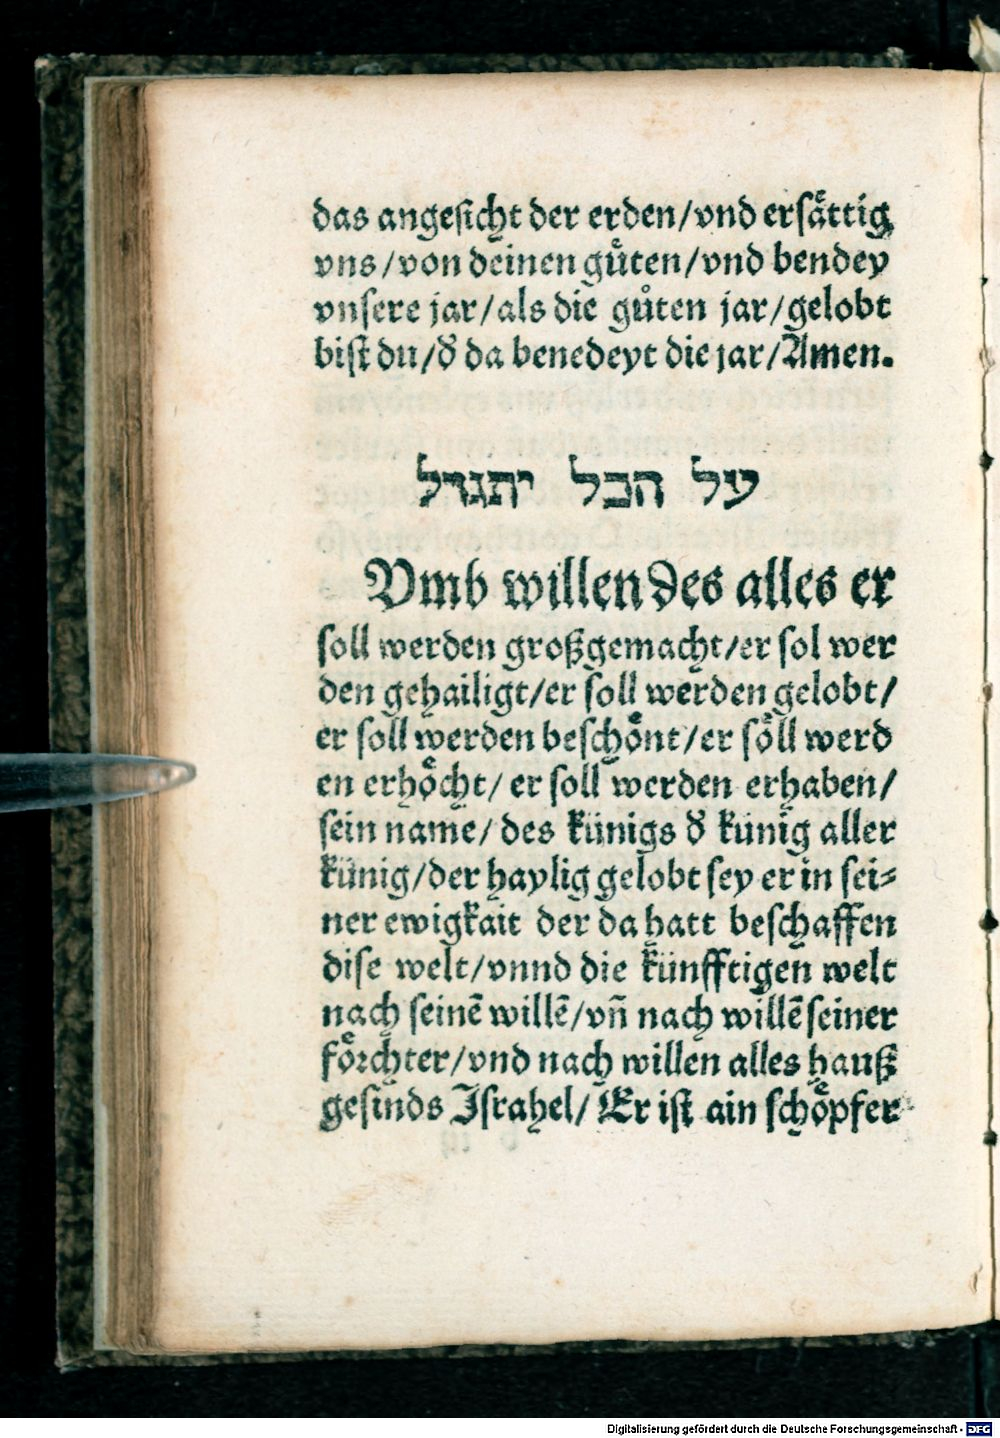 das angesicht der erden/vnd ersaͤttig
vns/von deinen guͤten/vnd bendey
vnsere jar/als die guͦten jar/gelobt
bist du/ď da benedeyt die jar/Amen.
על הכל יתגדל
Vmb willen des alles er
soll werden großgemacht/er sol wer
den gehailigt/er soll werden gelobt/
er soll werden beschoͤnt/er soͤll werd
en erhoͤcht/ er soll werden erhaben/
sein name/ des künigs ď künig aller
künig/der haylig gelobt sey er in sei⸗
ner ewigkait der da hatt beschaffen
dise welt/vnnd die künfftigen welt
nach seinē willē/vñ nach willē seiner
foͤrchter/vnd nach willen alles hauß
gesinds Israhel/ Er ist ain schoͤpfer
Digitalisierung gefördert durch die Deutsche Forschungsgemeinschaft - DFG